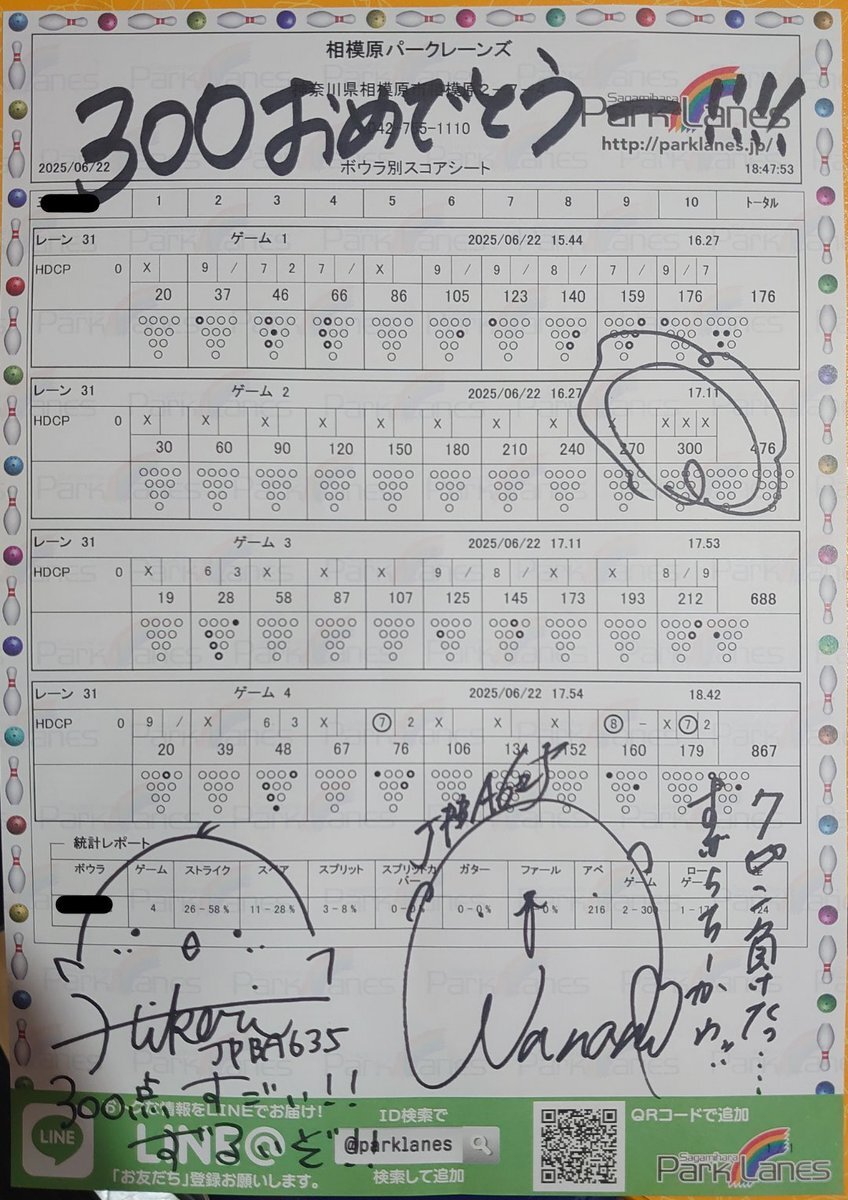 相模原パークレーンズ
300おめでとうー!!!!
1110
Sagamihara
Park Lanes
http://parklanes.jp/
2025/06/22 ボウラ別スコアシート 18:47:53
1 2 3 4 5 6 7 8 9 10 トータル
レーン 31 ゲーム 1 2025/06/22 15.44 16.27
HDCP 0 X 9 / 7 2 7 / X 9 / 9 / 8 / 7 / 9 / 7
20 37 46 66 86 105 123 140 159 176 176
レーン 31 ゲーム 2 2025/06/22 16.27 17.11
HDCP 0 X X X X X X X X X X X X
30 60 90 120 150 180 210 240 270 300 476
レーン 31 ゲーム 3 2025/06/22 17.11 17.53
HDCP 0 X 6 3 X X X 9 / 8 / X X 8 / 9
19 28 58 87 107 125 145 173 193 212 688
レーン 31 ゲーム 4 2025/06/22 17.54 18.42
HDCP 0 9 / X 6 3 X 7 2 X X X 8 - X 7 2
20 39 48 67 76 106 134 152 160 179 867
統計レポート
ボウラ ゲーム ストライク スペア スプリット スプリットカバー ガター ファール アベ
4 26-58% 11-28% 3-8% 0-0% 216 2-300
Hikaru
JPBA635
Nanami
300点 すごい!!
ずるいぞ!!
LINE
情報をLINEでお届け!
LINE@
「お友だち」登録お願いします。
ID検索で
@parklanes
検索して追加
QRコードで追加
Sagamihara
Park Lanes